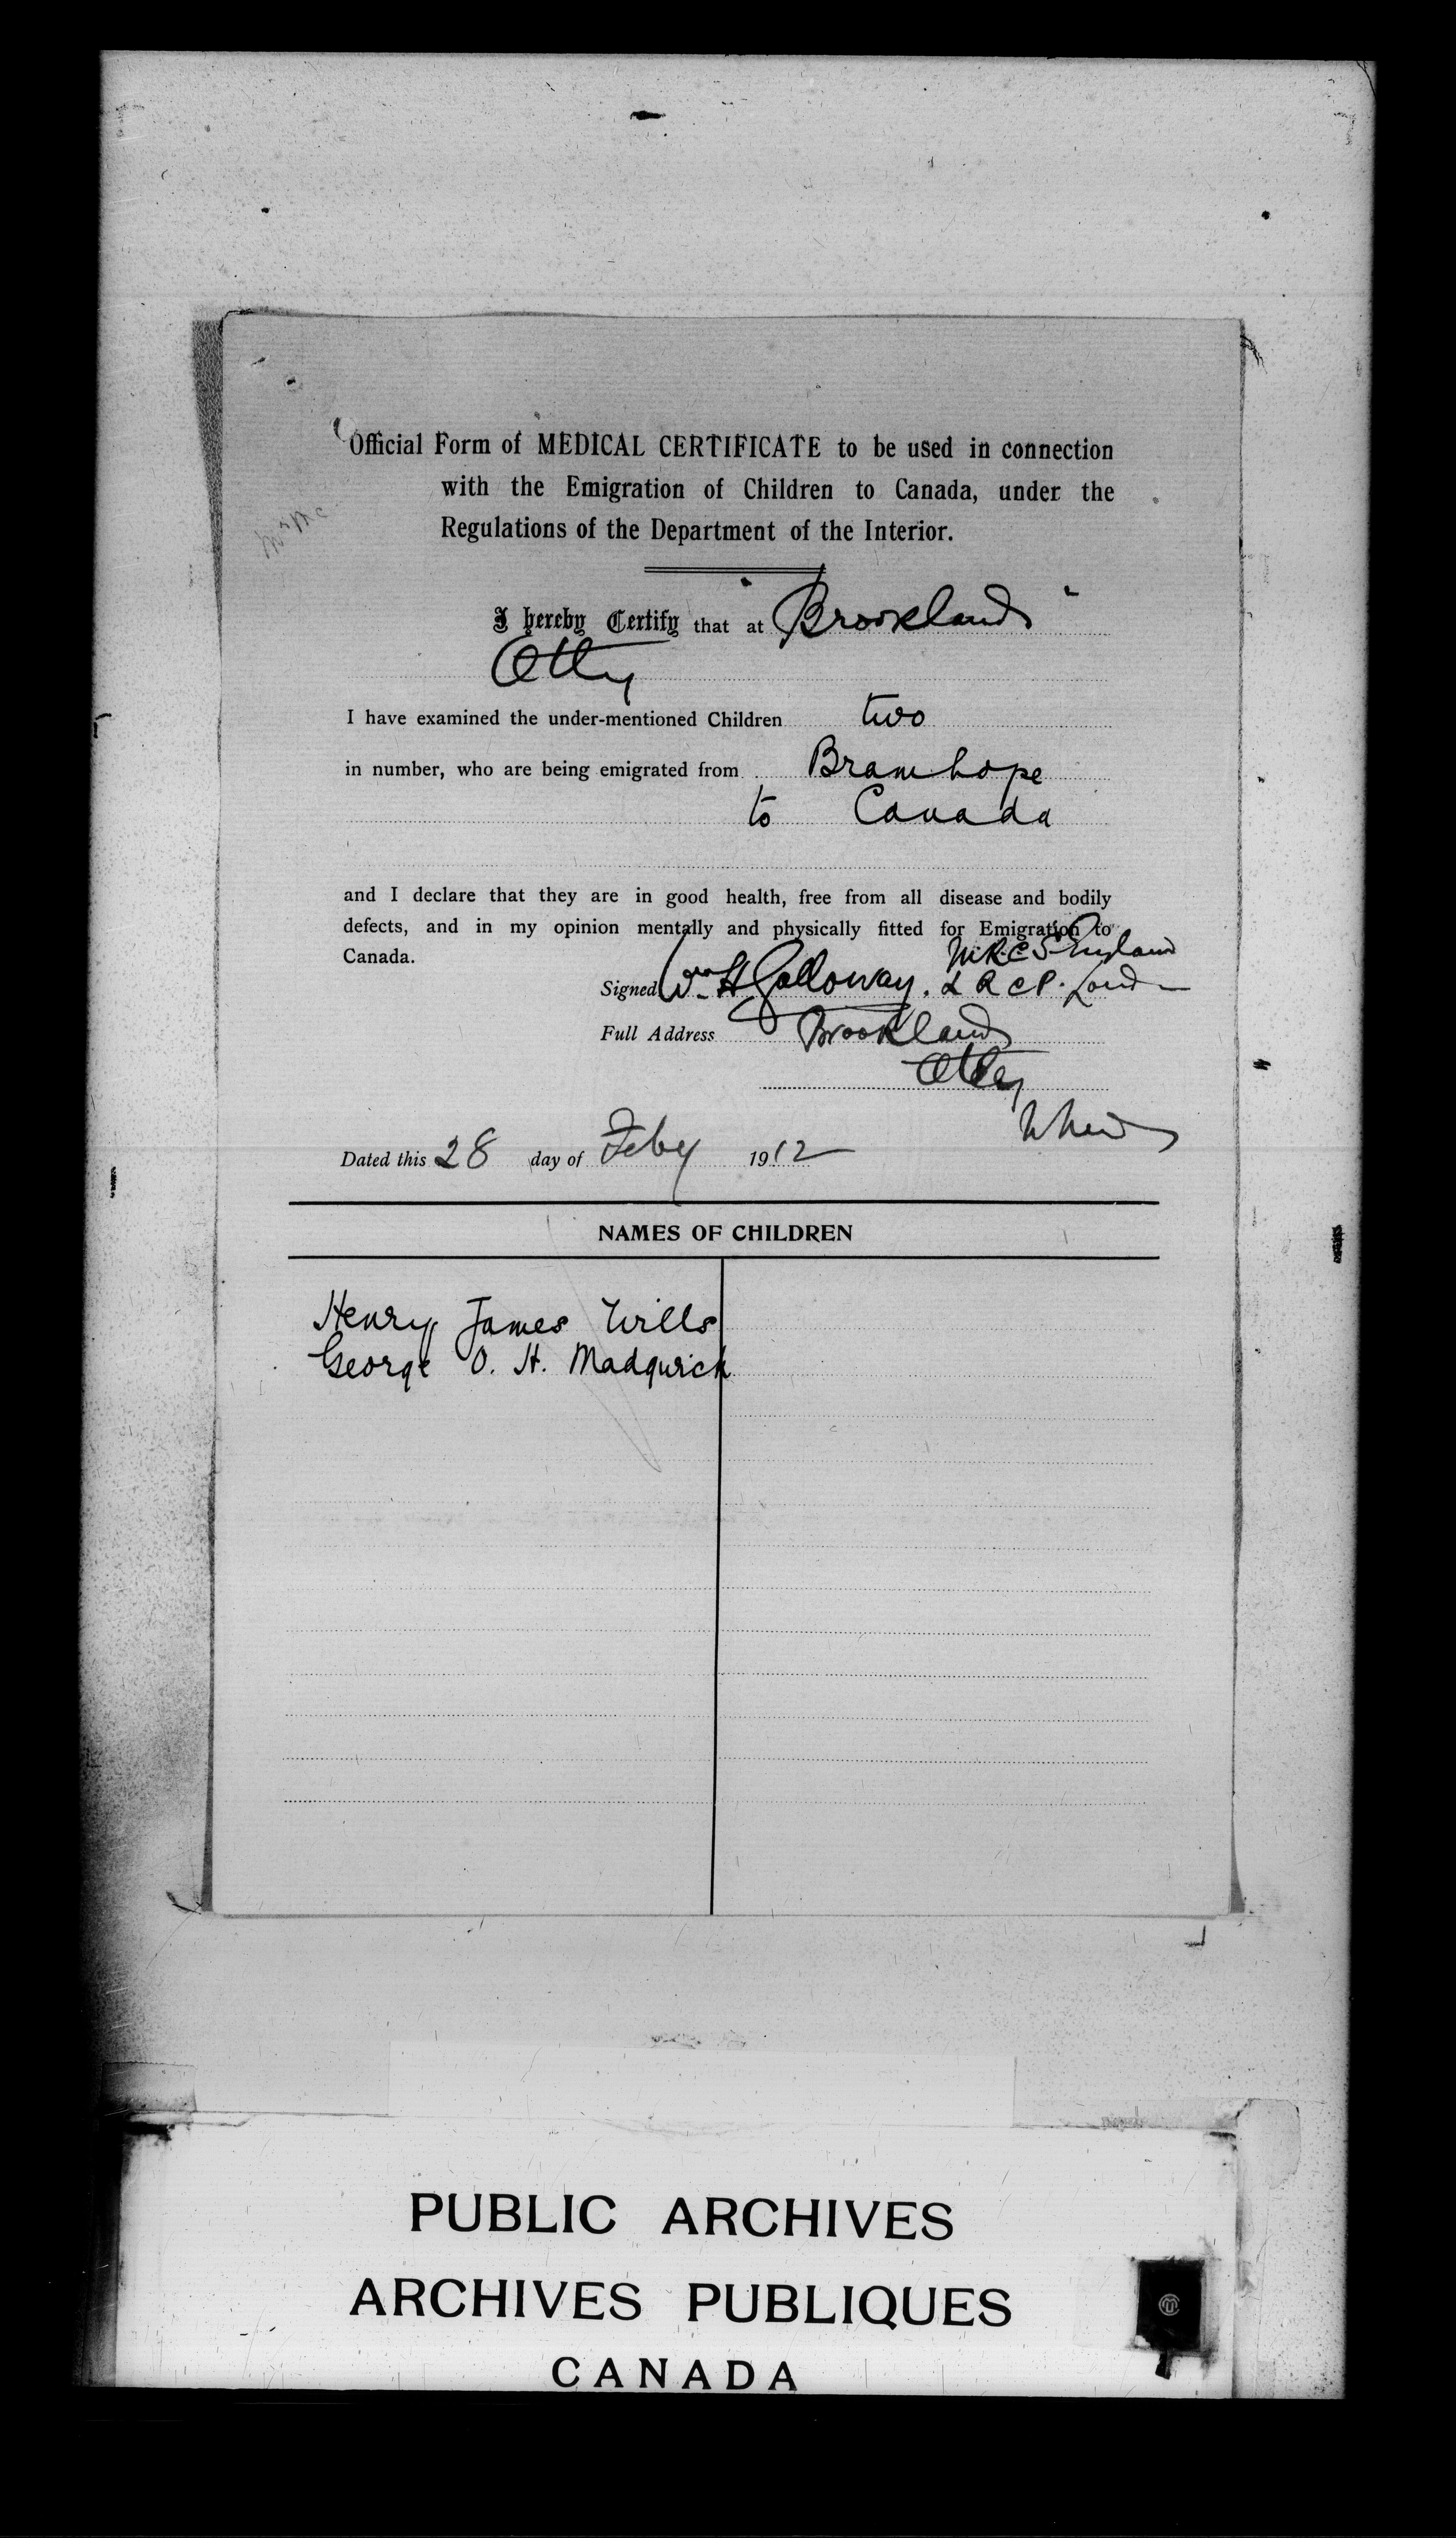 Official Form of MEDICAL CERTIFICATE to be used in connection
with the Emigration of Children to Canada, under the
Regulations of the Department of the Interior.
I hereby Certify that at "Brooklands"
Otley
I have examined the under-mentioned Children two
in number, who are being emigrated from Bramhope
to Canada
and I declare that they are in good health, free from all disease and bodily
defects, and in my opinion mentally and physically fitted for Emigration to
Canada.
M.R.C.S. England
Signed Wm H Galloway. L R C P. London
Full Address Brooklands
Otley
Dated this 28 day of Feby 1912
NAMES OF CHILDREN
Henry James Wills
George O. H. Madgwick
PUBLIC ARCHIVES
ARCHIVES PUBLIQUES
CANADA